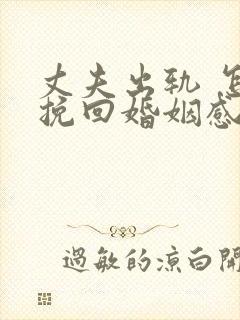 丈夫出轨 怎
挽回婚姻感
過敏的涼白開